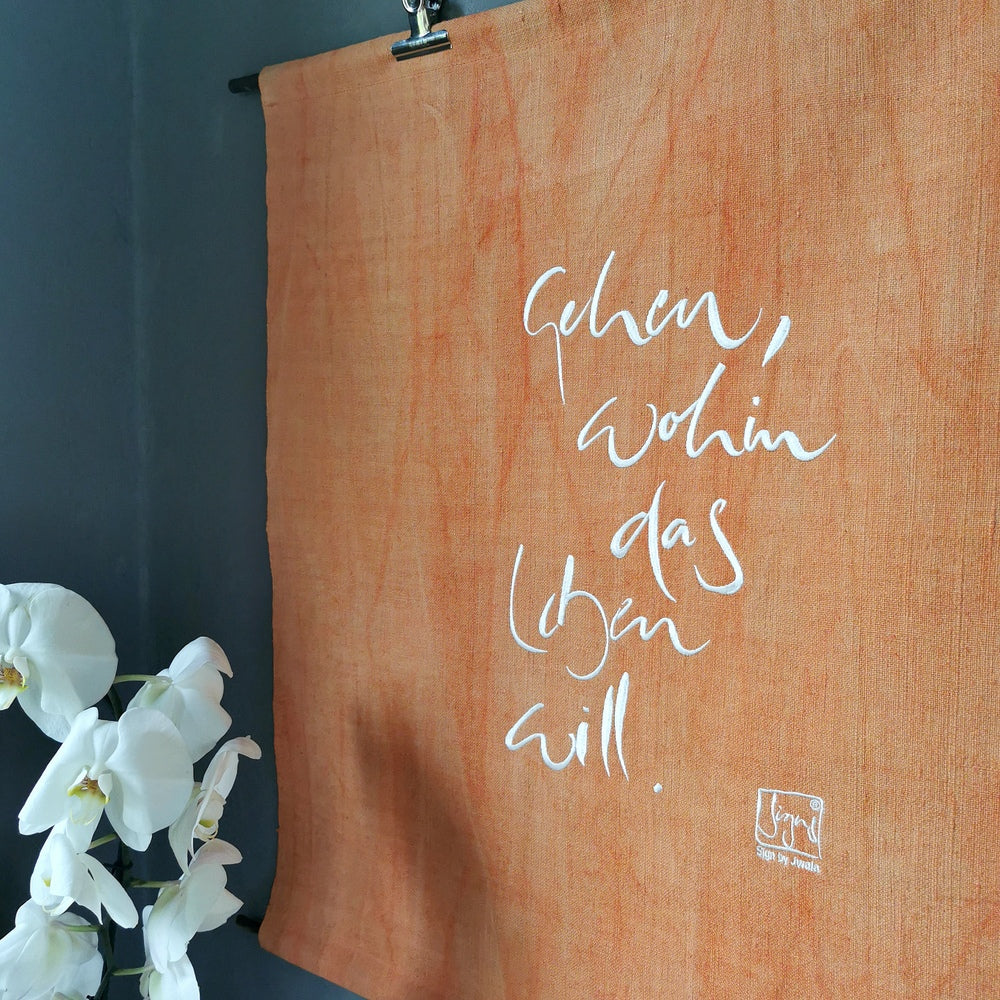 Gehen,
wohin
das
Leben
will.
Signs®
Sign by Jwala